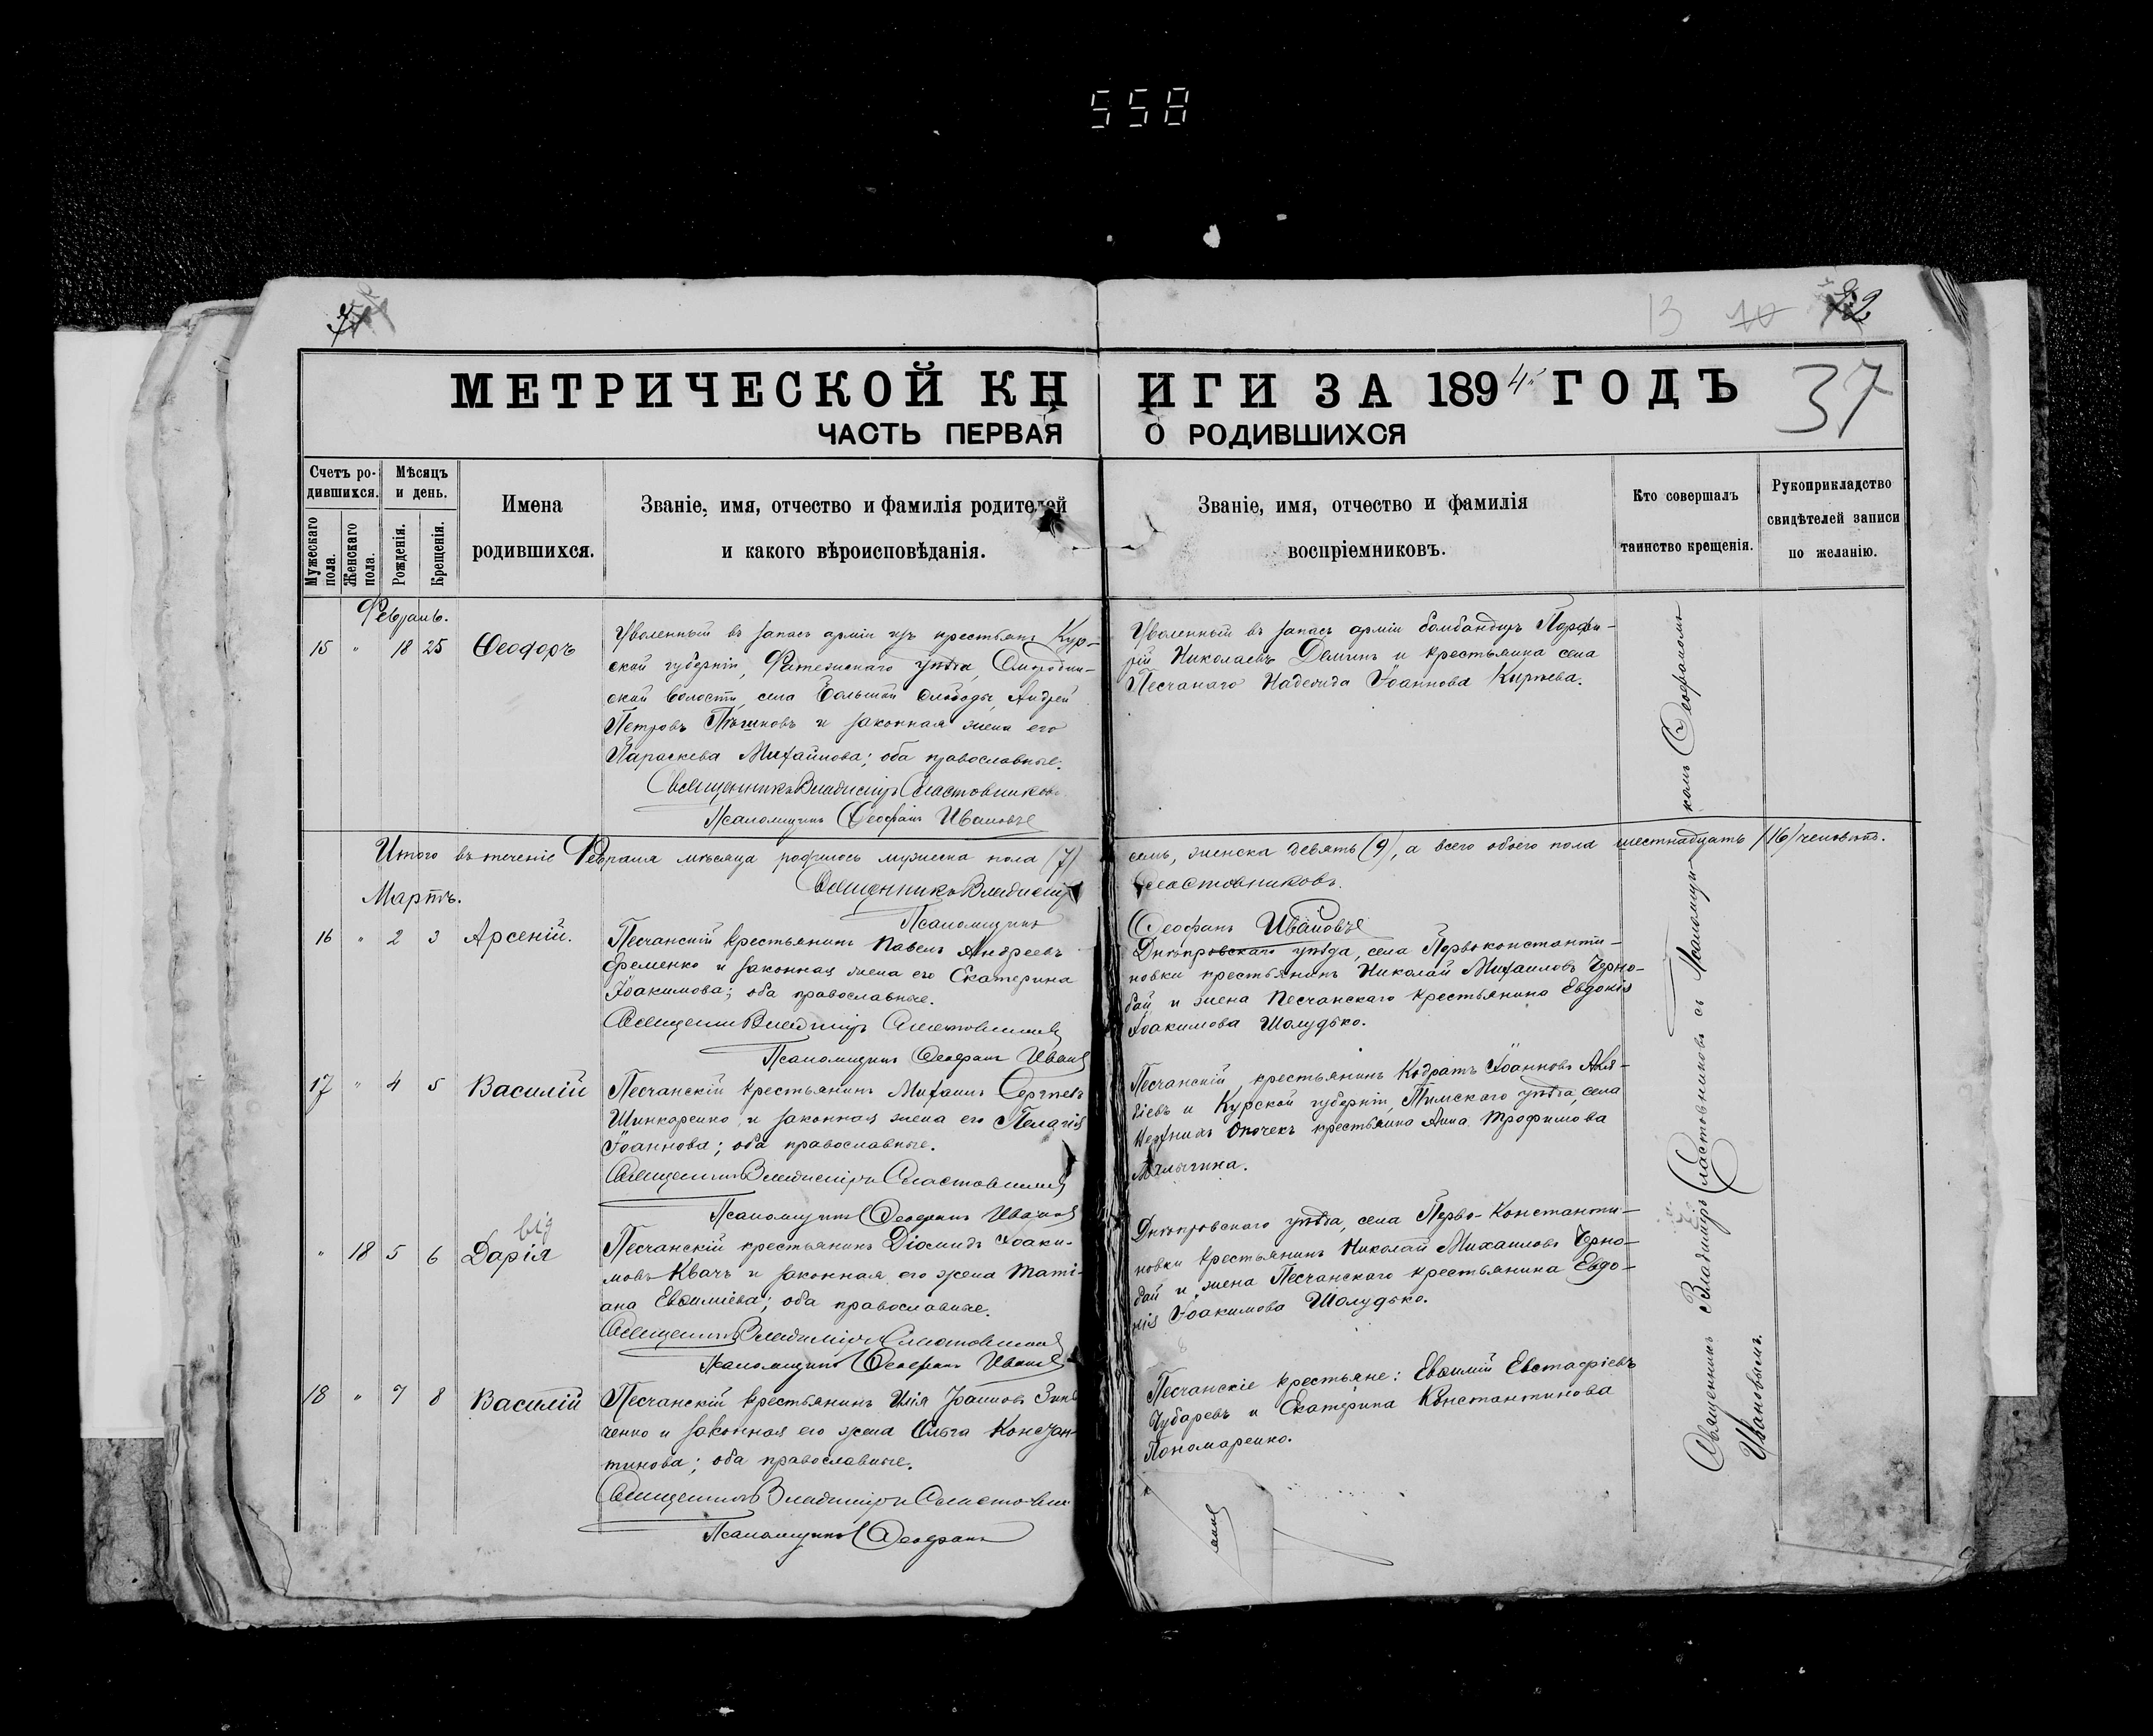 558
13 10 22
МЕТРИЧЕСКОЙ КНИГИ ЗА 1894 ГОДЪ
37
ЧАСТЬ ПЕРВАЯ О РОДИВШИХСЯ
Счетъ родившихся.
Мужескаго пола.
Женскаго пола.
Мѣсяцъ и день.
Рожденія.
Крещенія.
Имена
родившихся.
Званіе, имя, отчество и фамилія родителей
и какого вѣроисповѣданія.
Званіе, имя, отчество и фамилія
воспріемниковъ.
Кто совершалъ
таинство крещенія.
Рукоприкладство
свидѣтелей записи
по желанію.
Февраль.
15 " 18 25 Ѳеодоръ
Уволенный въ запасъ арміи изъ крестьянъ Кур-
ской губерніи, Фатежскаго уѣзда,
ской волости, села Большой Слободы, Андрей
Петровъ и законная жена его
Параскева Михайлова; оба православные.
Священникъ Владиміръ Сластовниковъ
Псаломщикъ Ѳеофанъ Ивановъ
Уволенный въ запасъ арміи бомбандиръ Порфи-
рій Николаевъ Деминъ и крестьянка села
Песчанаго Надежда Іоаннова Киреева.
Итого въ теченіе Февраля мѣсяца родилось мужеска пола (7) семь, женска девять (9), а всего обоего пола шестнадцать /16/ человѣкъ.
Священникъ Владиміръ Сластовниковъ.
Псаломщикъ Ѳеофанъ Ивановъ
Мартъ.
16 " 2 3 Арсеній.
Песчанскій крестьянинъ Павелъ Андреевъ
Еременко и законная жена его Екатерина
Іоакимова; оба православные.
Священникъ Владиміръ Сластовниковъ
Псаломщикъ Ѳеофанъ Ивановъ
Днѣпровскаго уѣзда, села Первоконстанти-
новки крестьянинъ Николай Михаиловъ Черно-
бай и жена Песчанскаго крестьянина Евдокія
Іоакимова Шолудько.
17 " 4 5 Василій
Песчанскій крестьянинъ Михаилъ Сергѣевъ
Шинкаренко и законная жена его Пелагія
Іоаннова; оба православные.
Священникъ Владиміръ Сластовниковъ
Псаломщикъ Ѳеофанъ Ивановъ
Песчанскій крестьянинъ Кодратъ Іоанновъ
и Курской губерніи, Тимскаго уѣзда, села
Верхнихъ Опочекъ крестьянка Анна Трофимова
Малыгина.
від
" 18 5 6 Дарія
Песчанскій крестьянинъ Діомидъ Іоаки-
мовъ Квачъ и законная его жена Таті-
ана Евѳиміева; оба православные.
Священникъ Владиміръ Сластовниковъ
Псаломщикъ Ѳеофанъ Ивановъ
Днѣпровскаго уѣзда, села Перво-Константи-
новки крестьянинъ Николай Михаиловъ Черно-
бай и жена Песчанскаго крестьянина Евдо-
кія Іоакимова Шолудько.
18 " 7 8 Василій
Песчанскій крестьянинъ Илія Іоанновъ Зин-
ченко и законная его жена Ольга Констан-
тинова; оба православные.
Священникъ Владиміръ Сластовник
Псаломщикъ Ѳеофанъ
Песчанскіе крестьяне: Евѳимій Евстафіевъ
Чубаревъ и Екатерина Константинова
Пономаренко.
Священникъ Владиміръ Сластовниковъ съ Псаломщи-
комъ Ѳеофаномъ
Ивановымъ.